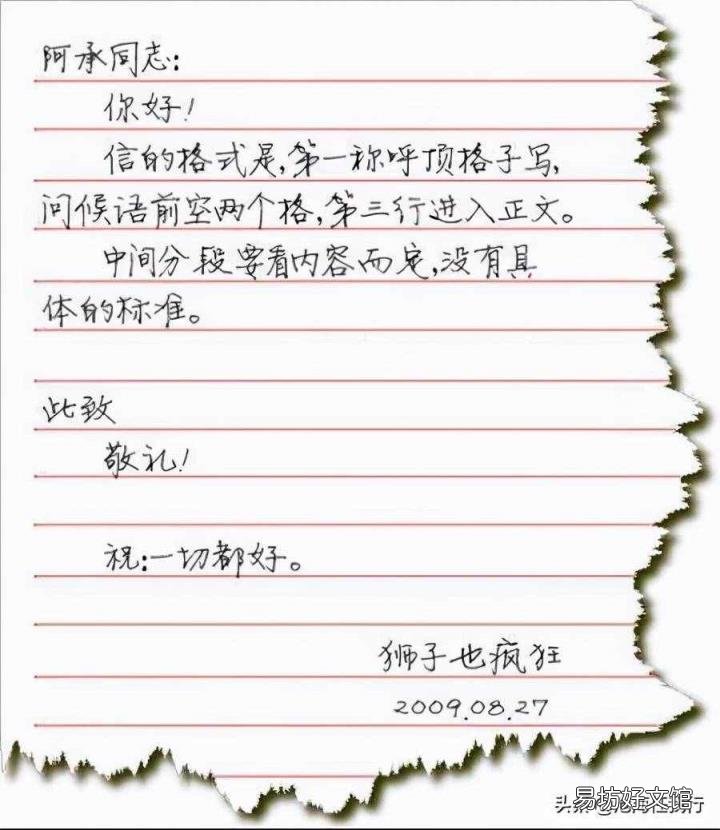 阿承同志:
你好!
信的格式是,第一称呼顶格子写,
问候语前空两个格,第三行进入正文。
中间分段要看内容而定,没有具
体的标准。
此致
敬礼!
祝:一切都好。
狮子也疯狂
2009.08.27
易坊好文馆
头条